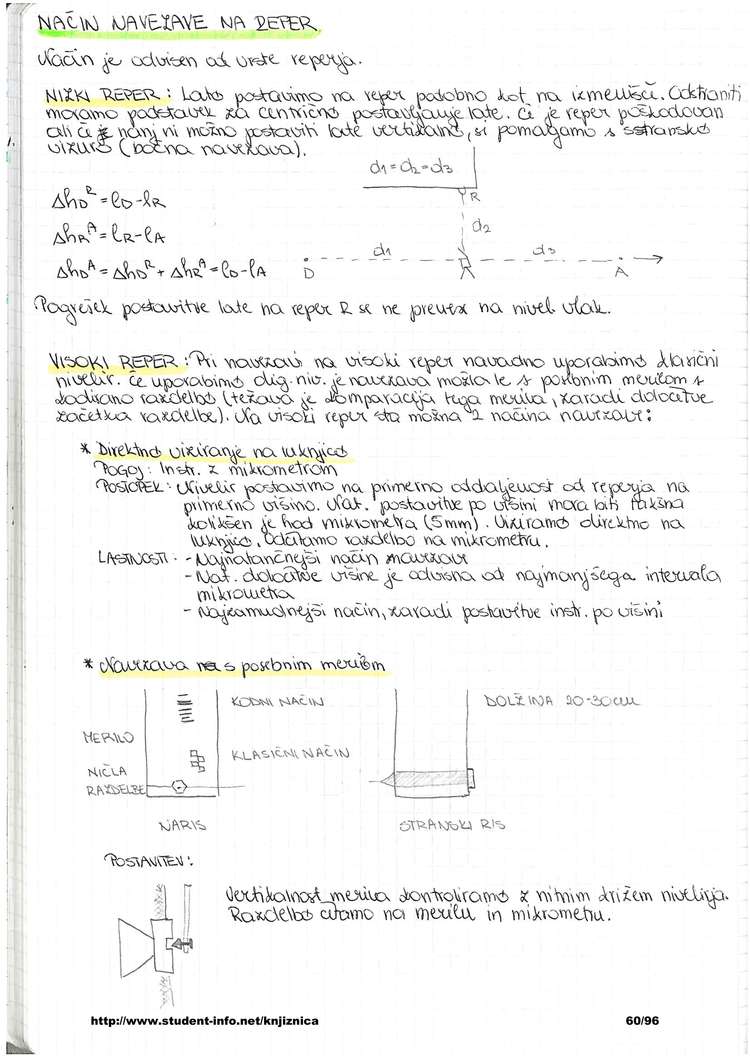 NAČIN NAVEZAVE NA REPER
Način je odvisen od vrste reperja.
NIZKI REPER: Lato postavimo na reper podobno kot na izmenišča. Odstraniti
moramo podstavek za centrično postavljanje late. Če je reper poškodovan
ali če nanj ni možno postaviti late vertikalno, si pomagamo s stransko
vizuro (bočna navezava).
1.
d1=d2=d3
R
ΔhD^R = lD-lR
d2
ΔhR^A = lR-lA
d1
d3
ΔhD^A = ΔhD^R + ΔhR^A = lD-lA
D
A
Pogrešek postavitve late na reper R se ne prenese na nivel. vlak.
VISOKI REPER: Pri navezavi na visoki reper navadno uporabimo klasični
nivelir. Če uporabimo dig. niv. je navezava možna le s posebnim merilom s
kodirano razdelbo (težava je komparacija tega merila, zaradi določitve
začetka razdelbe). Na visoki reper sta možna 2 načina navezave:
* Direktno viziranje na luknjico
POGOJ: Instr. z mikrometrom
POSTOPEK: Nivelir postavimo na primerno oddaljenost od reperja na
primerno višino. Nat. postavitve po višini mora biti takšna
kolikšen je hod mikrometra (5mm). Viziramo direktno na
luknjico. Odčitamo razdelbo na mikrometru.
LASTNOSTI: - Najnatančnejši način navezave
- Nat. določitve višine je odvisna od najmanjšega intervala
mikrometra
- Najzamudnejši način, zaradi postavitve instr. po višini
* Navezava s posebnim merilom
KODNI NAČIN
DOLŽINA 20-30cm
MERILO
KLASIČNI NAČIN
NIČLA
RAZDELBE
NARIS
STRANSKI RIS
POSTAVITEV:
Vertikalnost merila kontroliramo z nitnim križem nivelirja.
Razdelbo čitamo na merilu in mikrometru.
http://www.student-info.net/knjiznica
60/96